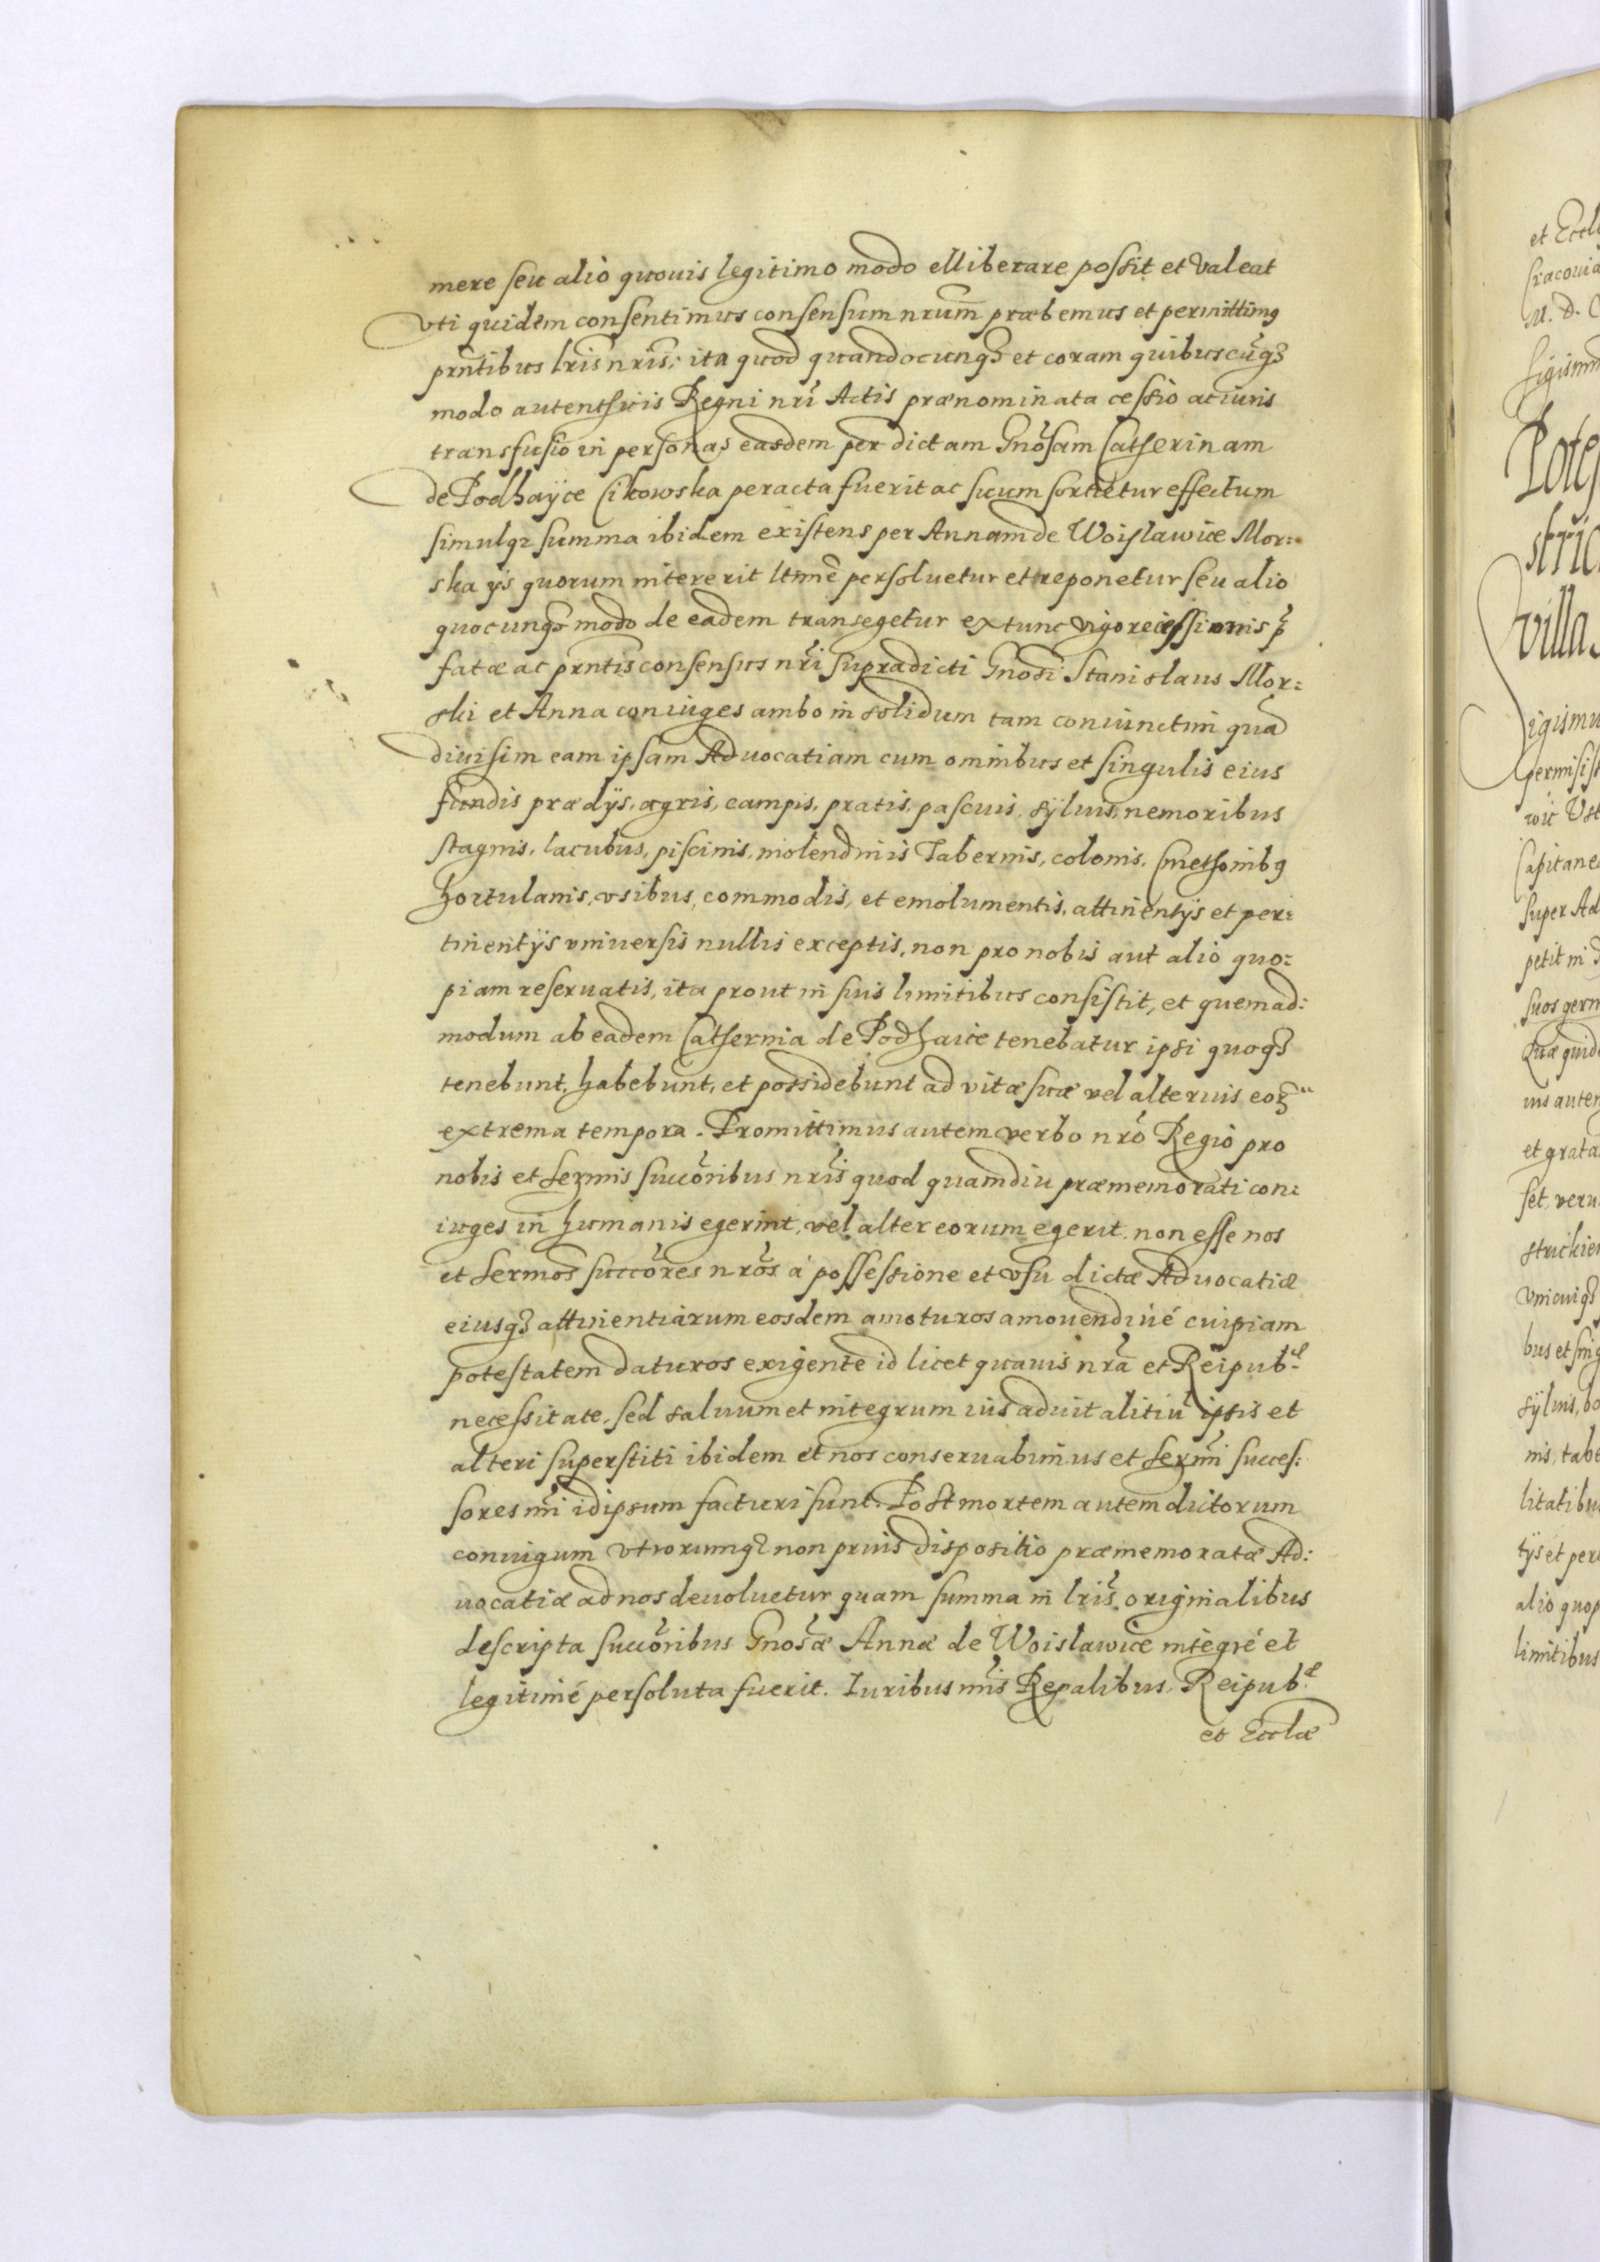 mere seu alio quouis legitimo modo elliberare possit et valeat
vti quidem consentimus consensum nrum præbemus et permittimg
prntibus lris nris: ita quod quandocunqz et coram quibuscuqz
modo autenthicis Regni nri Actis prænominata cessio ac iuris
transfusio in personas easdem per dictam Gnosam Catherinam
de Podhayce Cikowska peracta fuerit ac suum sortietur effectum
simulqz summa ibidem existens per Annam de Woislawice Mor:
ska ijs quorum intererit ltime persoluetur et reponetur seu alio
quocunqz modo de eadem transegetur extunc vigore cessionis p
fatæ ac prntis consensus nri supradicti Gnosi Stanislaus Mor:
ski et Anna coniuges ambo in solidum tam coniunctim qua
diuisim eam ipsam Aduocatiam cum omnibus et singulis eius
fundis prædijs, agris, campis, pratis, pascuis, syluis, nemoribus
stagnis, lacubus, piscinis, molendinis Tabernis, colonis, Cmethonibg
hortulanis, vsibus, commodis, et emolumentis, attinentijs et per:
tinentijs vniuersis nullis exceptis, non pro nobis aut alio quo:
piam reseruatis, ita prout in suis limitibus consistit, et quemad:
modum ab eadem Catherina de Podhaice tenebatur ipsi quoqz
tenebunt, habebunt, et possidebunt ad vitæ suæ vel alterius eorz
extrema tempora. Promittimus autem verbo nro Regio pro
nobis et Sermis succoribus nris quod quamdiu præmemorati con:
iuges in humanis egerint, vel alter eorum egerit, non esse nos
et Sermos succores nros á possessione et vsu dictæ Aduocatiæ
eiusqz attinentiarum eosdem amoturos amouendiué cuipiam
potestatem daturos exigente id licet quauis nra et Reipubl.
necessitate, sed saluum et integrum ius aduitalitiu ipsis et
alteri superstiti ibidem et nos conseruabimus et Sermi succes:
sores nri idipsum facturi sunt. Post mortem autem dictorum
coniugum vtrorumqz non prius dispositio præmemoratæ Ad:
uocatiæ ad nos deuoluetur quam summa in lris originalibus
descripta succoribus Gnosæ Annæ de Woislawice integré et
legitimé persoluta fuerit. Iuribus nris Regalibus, Reipubl.
et Ecclæ